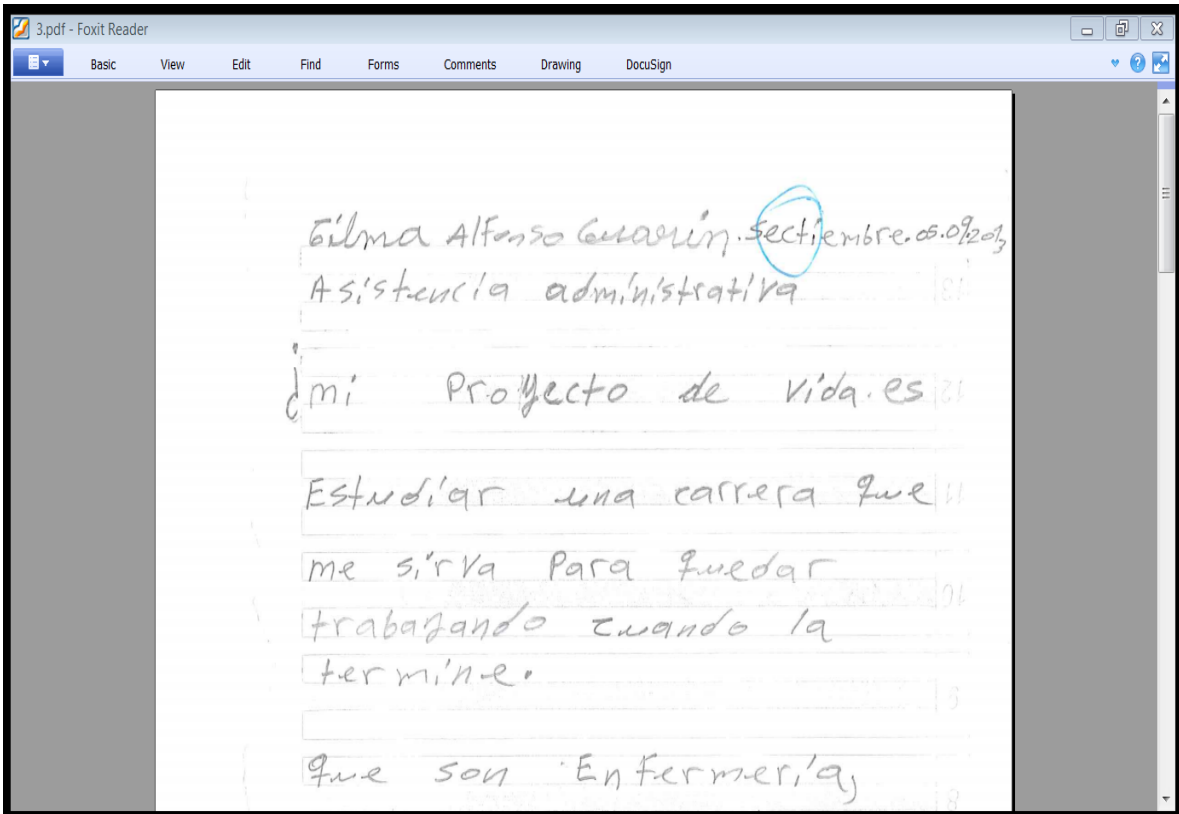 3.pdf - Foxit Reader
Basic View Edit Find Forms Comments Drawing DocuSign
Gilma Alfonso Guarin. Sectiembre.05.09.2013
Asistencia administrativa
¿mi Proyecto de vida. es
Estudiar una carrera que
me sirva Para quedar
trabajando cuando la
termine.
que son Enfermería,